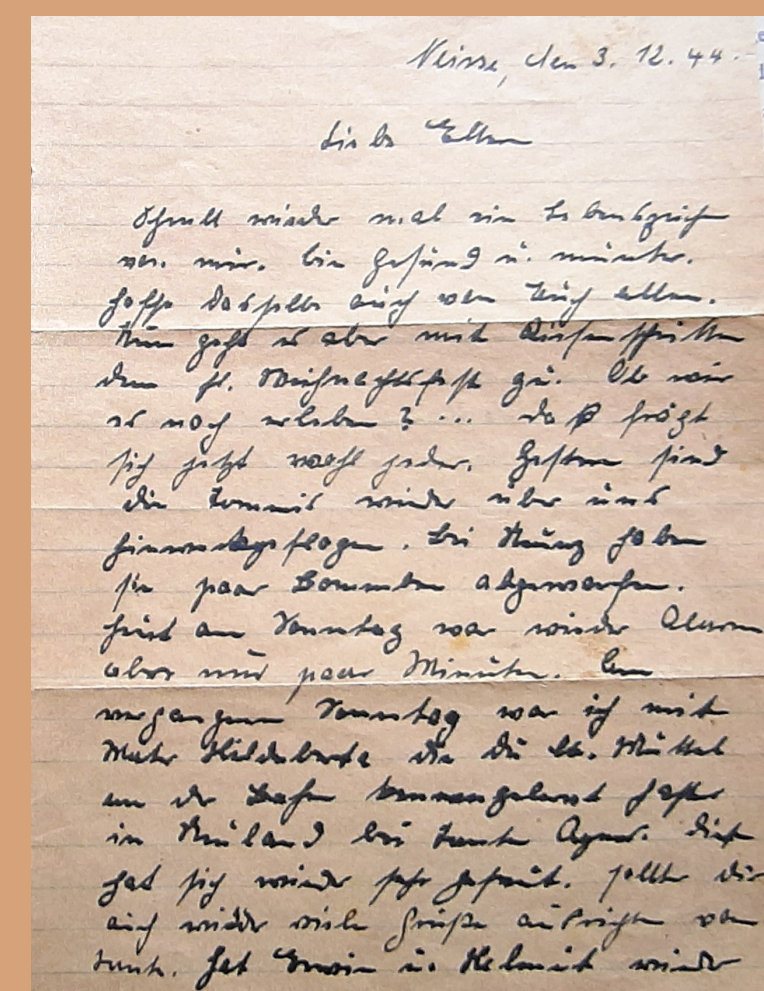 Neisse, den 3. 12. 44.
Liebe Eltern
Schnell wieder mal ein Lebenszeichen
von mir. bin gesund u. munter.
hoffe dasselbe auch von Euch allen.
Nun geht es aber mit Riesenschritten
dem hl. Weihnachtsfest zu. Ob wir
es noch erleben? ... daß frägt
sich jetzt wohl jeder. Gestern sind
die Tommis wieder über uns
hinweggeflogen. bei Neunz haben
sie paar Bommben abgeworfen.
heut am Sonntag war wieder Alarm
aber nur paar Minuten. Am
vergangenen Sonntag war ich mit
Mater Hildeberta die du lb. Muttel
an der Bahn kennengelernt hast
in Neuland bei Tante Agnes. diese
hat sich wieder sehr gefreut. sollte dir
auch wieder viele Grüße ausrichten von
Tante. hat Erwin u. Helmut wieder